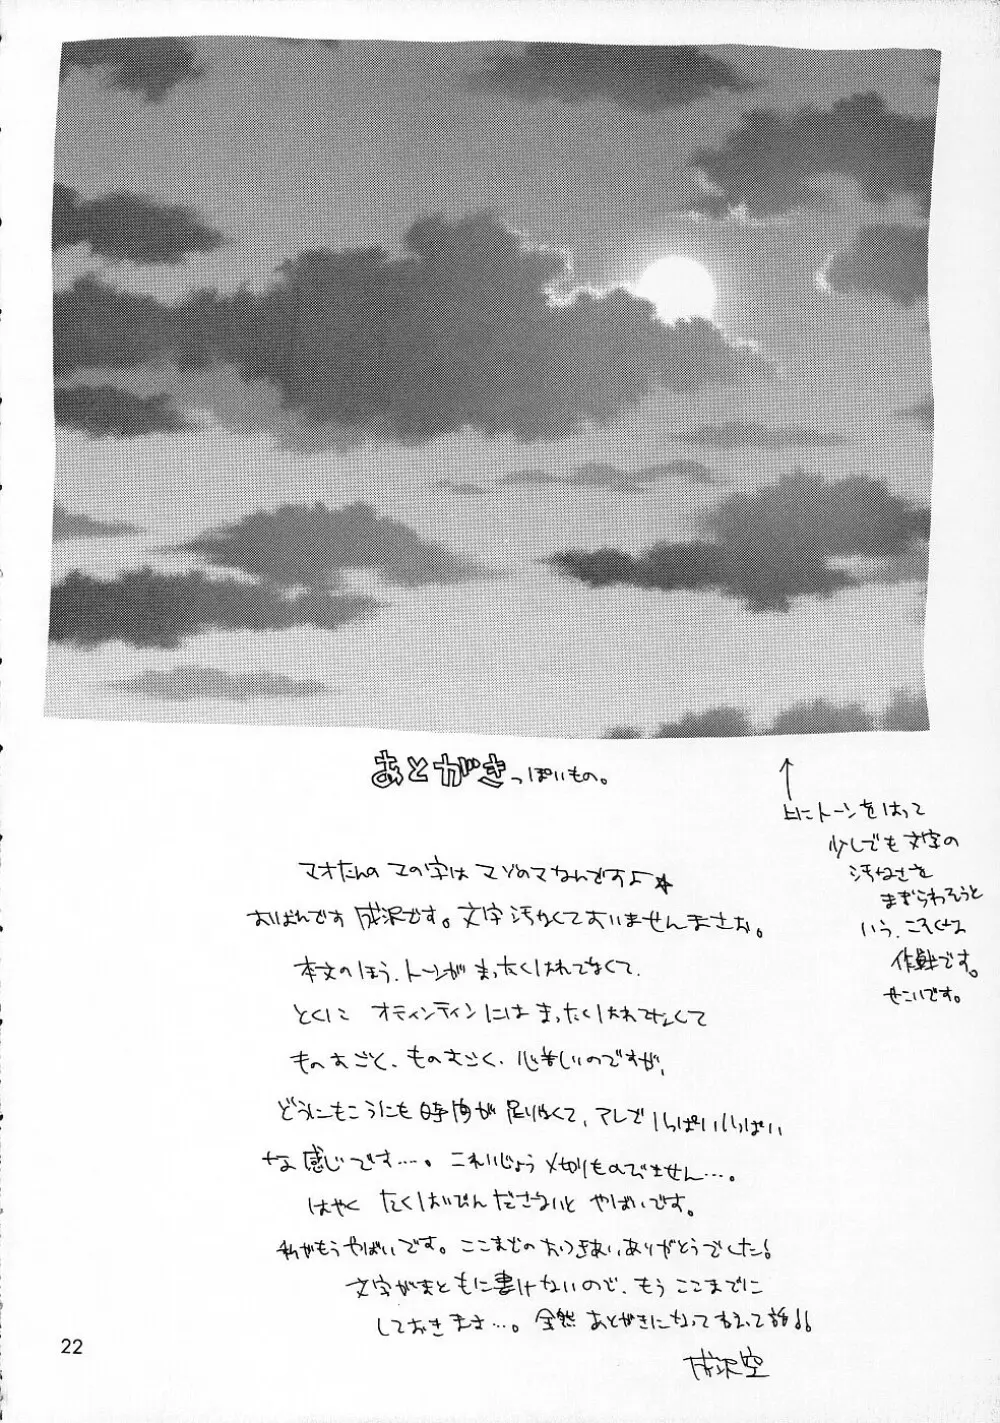 あとがきっぽいもの。
↑
上にトーンをはって
少しでも文字の
汚なさを
まぎらわそうと
いう、こそくな
作戦です。
せこいです。
マオたんのマの字はマゾのマなんですよ☆
おばんです成沢です。文字汚なくておいませんまさお。
本文のほう、トーンがまったくはれてなくて、
とくに オティンティンにはまったくはれてなくて
ものすごく、ものすごく、心苦しいのですが、
どうにもこうにも時間が足りなくて、アレでいっぱいいっぱい
な感じです…。これいじょう〆切りものびません…。
はやく たくはいびんださないと やばいです。
私がもうやばいです。ここまでのおつきあいありがとうでした!
文字がまともに書けないので、もうここまでに
しておきます…。全然あとがきになってねえって話!!
成沢空
22